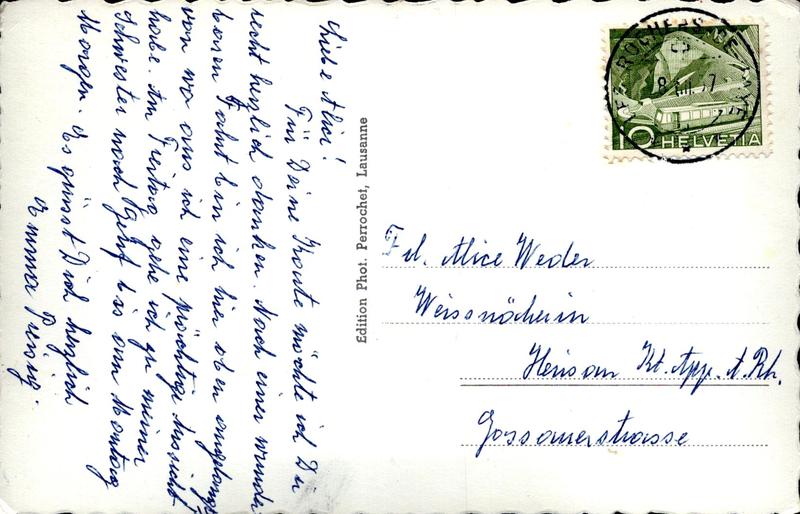 Liebe Alice!
Für Deine Karte möchte ich Dir
recht herzlich danken. Nach einer wunder
baren Fahrt bin ich hier oben angelangt
von wo aus ich eine prächtige Aussicht
habe. Am Freitag gehe ich zu meiner
Schwester nach Genf bis am Montag
Morgen. Es grüsst Dich herzlich
Emma
Edition Phot. Perrochet, Lausanne
ROCHERS DE NAYE
8. VII. 
10 HELVETIA
Frl. Alice Weder
Weissnäherin
Herisau Kt. App. A. Rh.
Gossauerstrasse